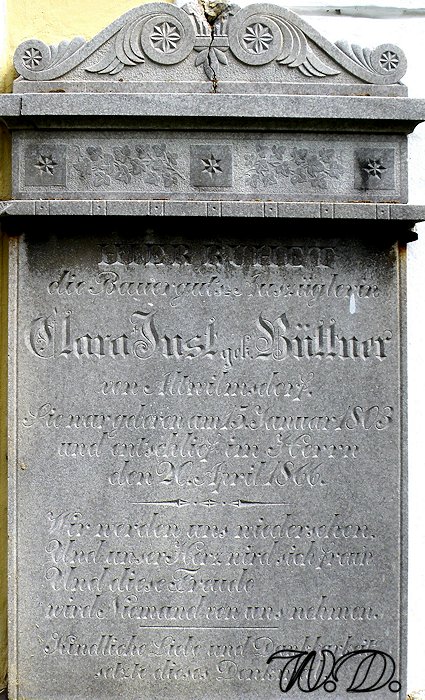 HIER RUHET
die Bauerguts-Auszüglerin
Clara Just geb. Büttner
von Altwilmsdorf.
Sie war geboren am 15. Januar 1803
und entschlief im Herrn
den 20. April 1866.
Wir werden uns wiedersehen,
Und unser Herz wird sich freun
Und diese Freude
wird Niemand von uns nehmen.
Kindliche Liebe und Dankbarkeit
setzte dieses
W.D.